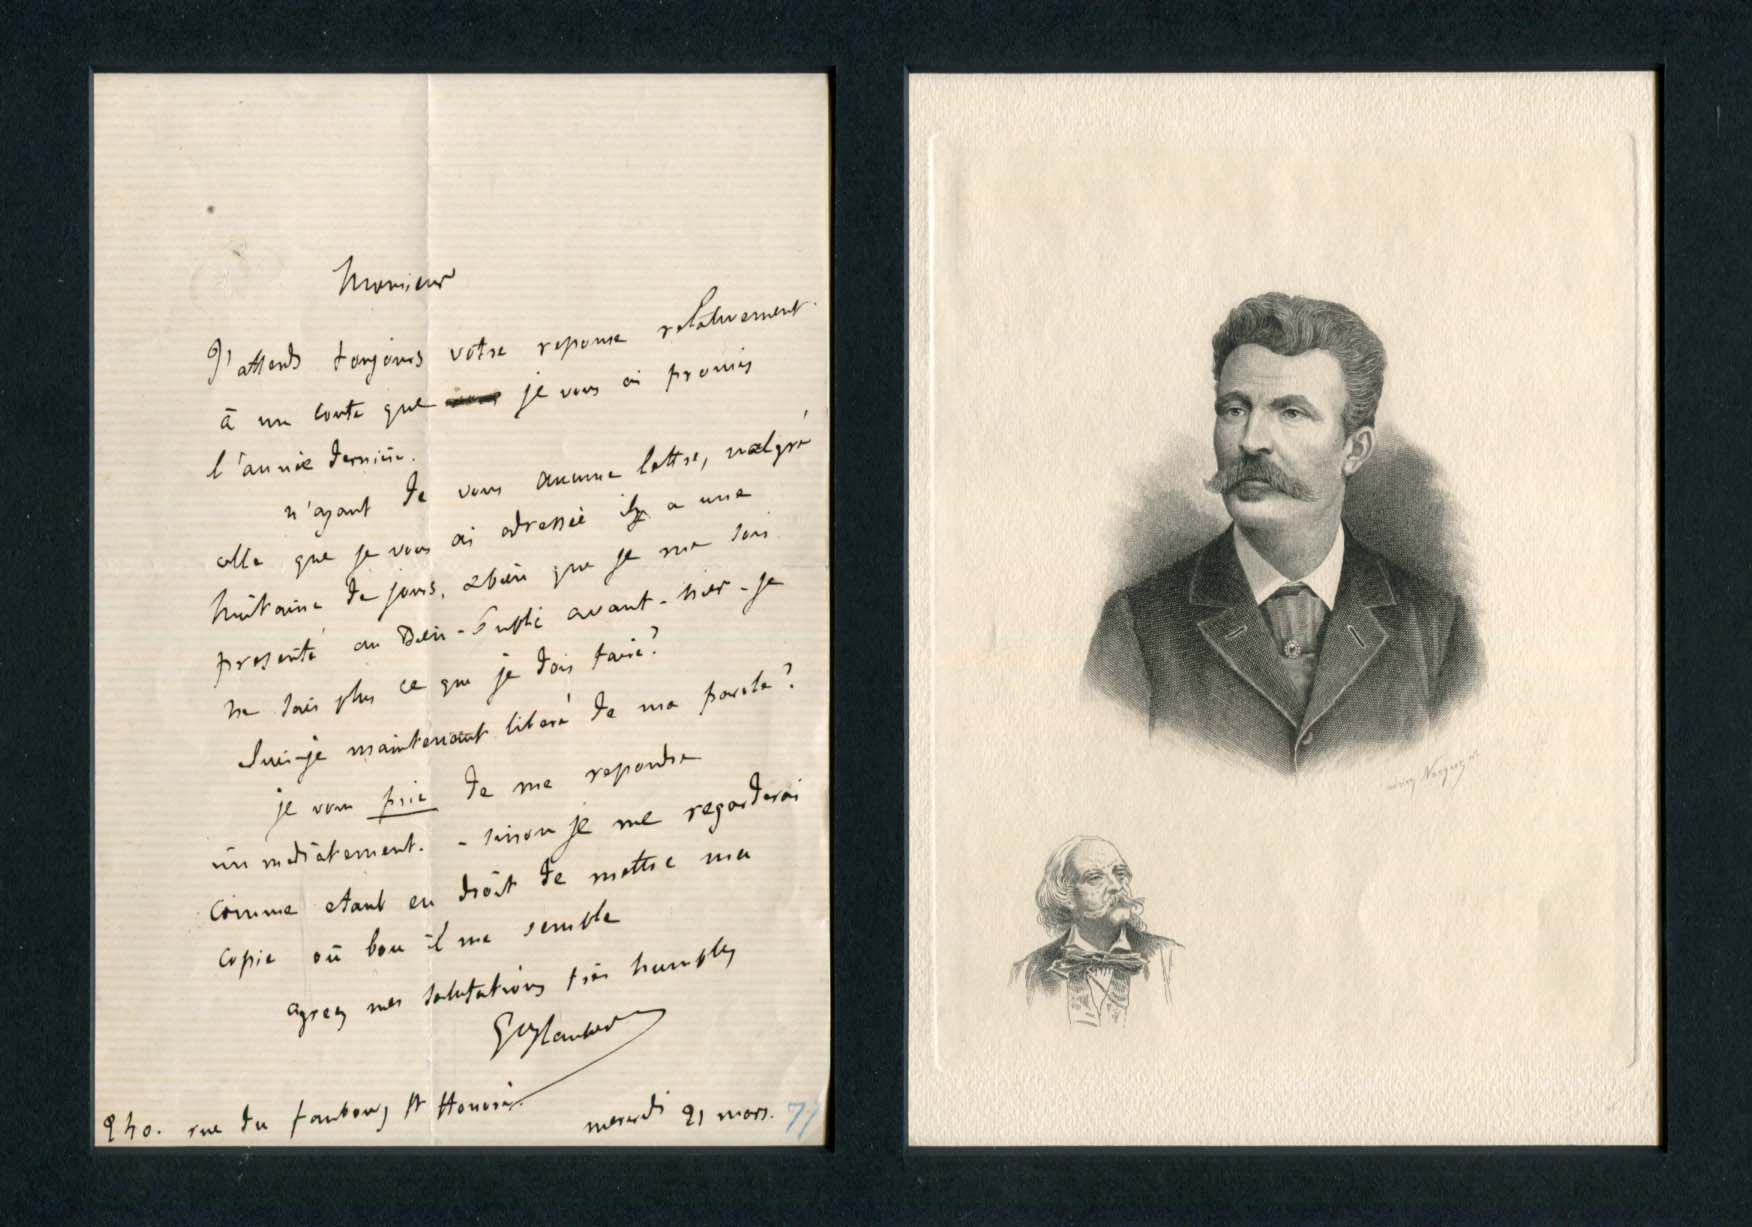 Monsieur
J'attends toujours votre reponse relativement
à un conte que je vous ai promis
l'année dernière.
n'ayant de vous aucune lettre, malgré
celle que je vous ai adressée il y a une
huitaine de jours, & bien que je me sois
presenté au Bien-Public avant-hier - je
ne sais plus ce que je dois faire?
Suis-je maintenant liberé de ma parole?
je vous prie de me repondre
immediatement. - sinon je me regarderai
comme etant en droit de mettre ma
copie où bon il me semble
agreez mes salutations très humbles
240. rue du faubourg St Honoré.
mercredi 21 mars. 77